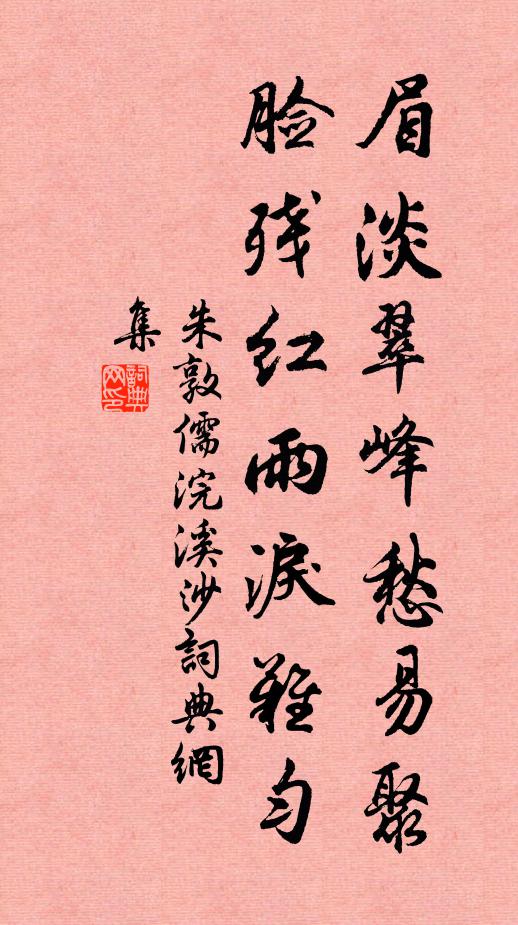 眉淡翠峰愁易聚
脸残红雨淚難勻
朱敦儒浣溪沙詞典網
集
詞典
网印